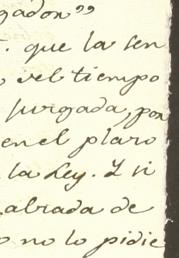 gadon"
. que la sen
o vel tiempo
jurgada, por
en el plazo
la Ley. Y si
alzada de
o no lo pidie